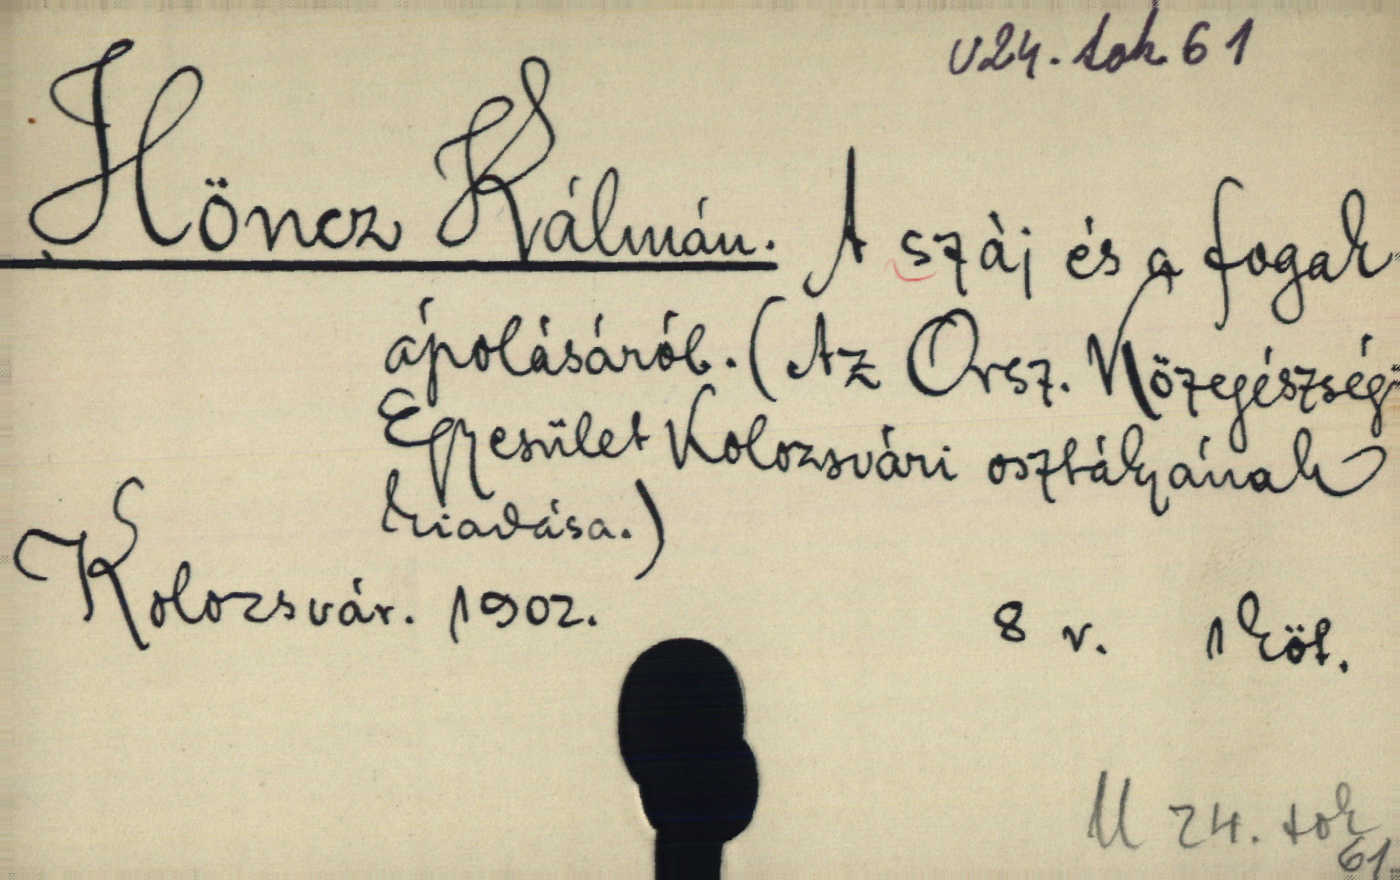 U24. tok 61
Höncz Kálmán. A száj és a fogak
ápolásáról. (Az Orsz. Közegészség-
Egyesület Kolozsvári osztályának
kiadása.)
Kolozsvár. 1902. 8 v. 1 köt.
U 24. tok
61.